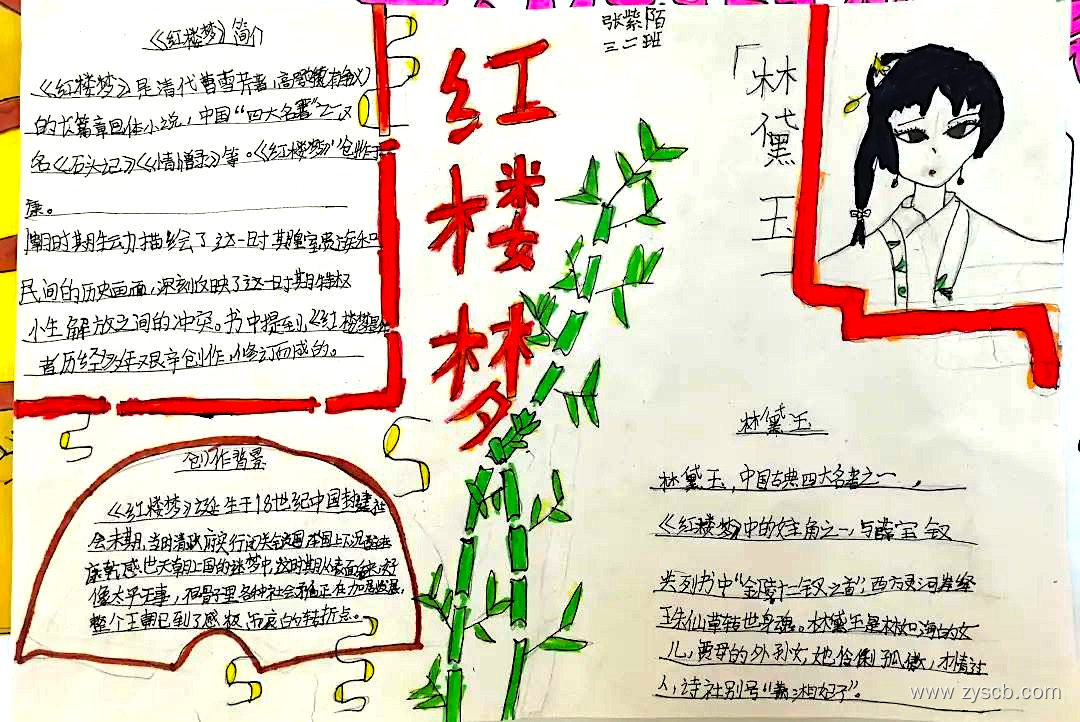 《红楼梦》简介
《红楼梦》是清代曹雪芹著
的长篇章回体小说，中国“四大名著”之一，又
名《石头记》《情僧录》等。《红楼梦》创作于
康。
时期生动描绘了这一时期皇室贵族和
民间的历史画面，深刻反映了这一时期特权
解放之间的冲突。书中提到《红楼梦》
者历经多年艰辛创作、修订而成的。
创作背景
《红楼梦》诞生于18世纪中国封建社
会末期，当时清政府实行闭关全国
盛世天朝上国的迷梦中，这时期从表面看来好
像太平无事，但骨子里各种社会矛盾正在加剧发展，
整个王朝已到了盛极而衰的转折点。
红楼梦
张紫陌
三二班
「林黛玉」
林黛玉
林黛玉，中国古典四大名著之一，
《红楼梦》中的女主角之一，与薛宝钗
并列书中“金陵十二钗之首”，西方灵河岸绛
珠仙草转世身魂。林黛玉是林如海的女
儿，贾母的外孙女，她伶俐孤傲，才情过
人，诗社别号“潇湘妃子”。
www.zyscb.com